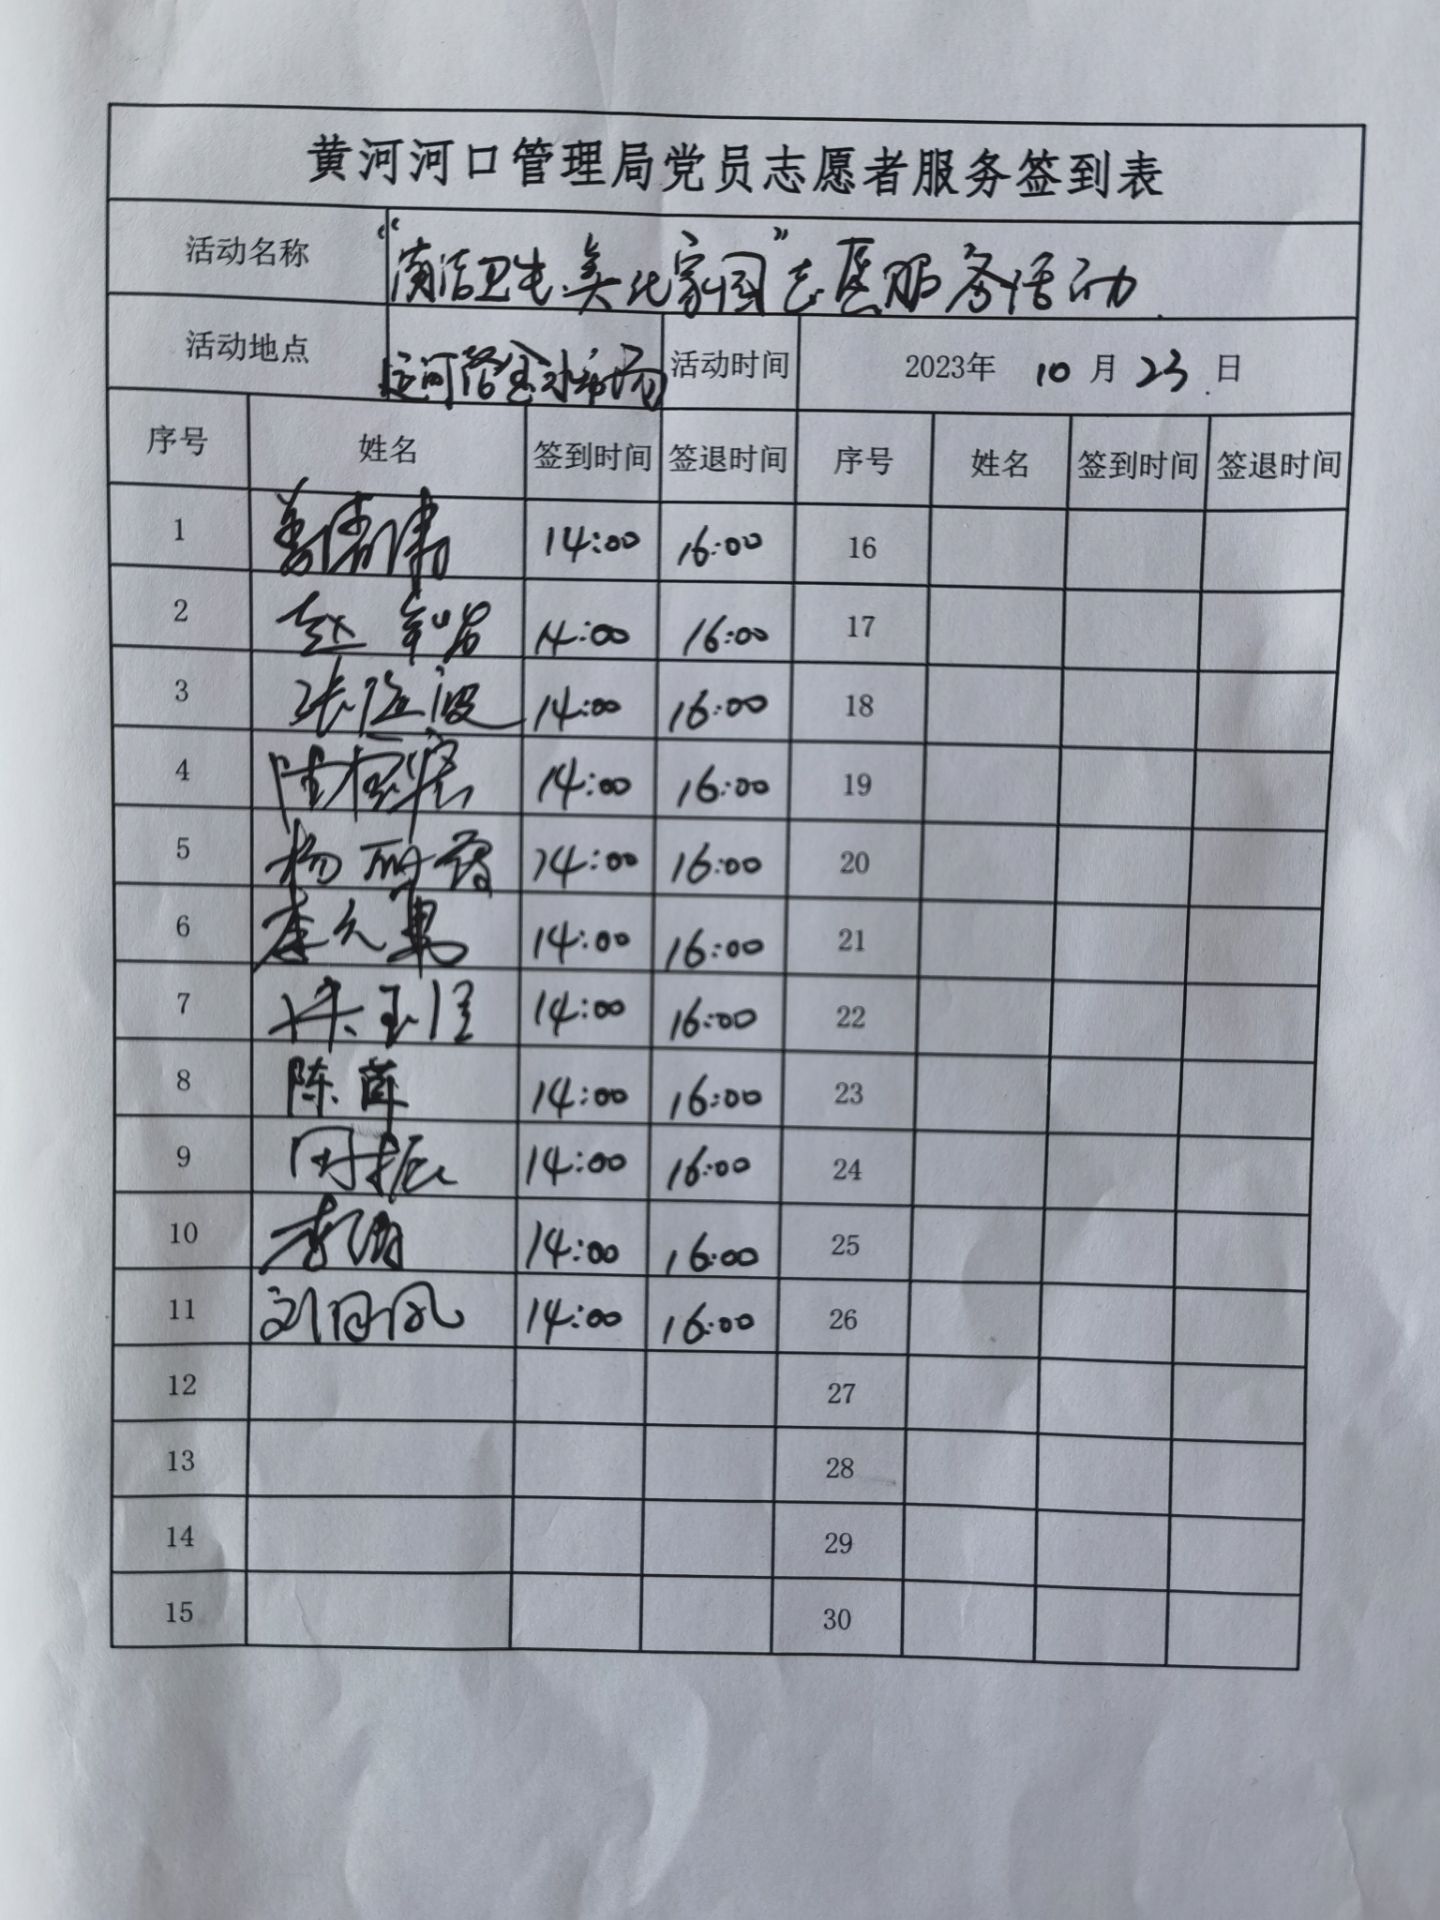 黄河河口管理局党员志愿者服务签到表
活动名称 “清洁卫生、美化家园”志愿服务活动
活动地点 活动时间 2023年 10 月 23 日
序号 姓名 签到时间 签退时间 序号 姓名 签到时间 签退时间
1 14:00 16:00 16
2 赵 14:00 16:00 17
3 张 波 14:00 16:00 18
4 14:00 16:00 19
5 杨丽 14:00 16:00 20
6 李久 14:00 16:00 21
7 14:00 16:00 22
8 陈 14:00 16:00 23
9 周振 14:00 16:00 24
10 李 14:00 16:00 25
11 刘 14:00 16:00 26
12 27
13 28
14 29
15 30